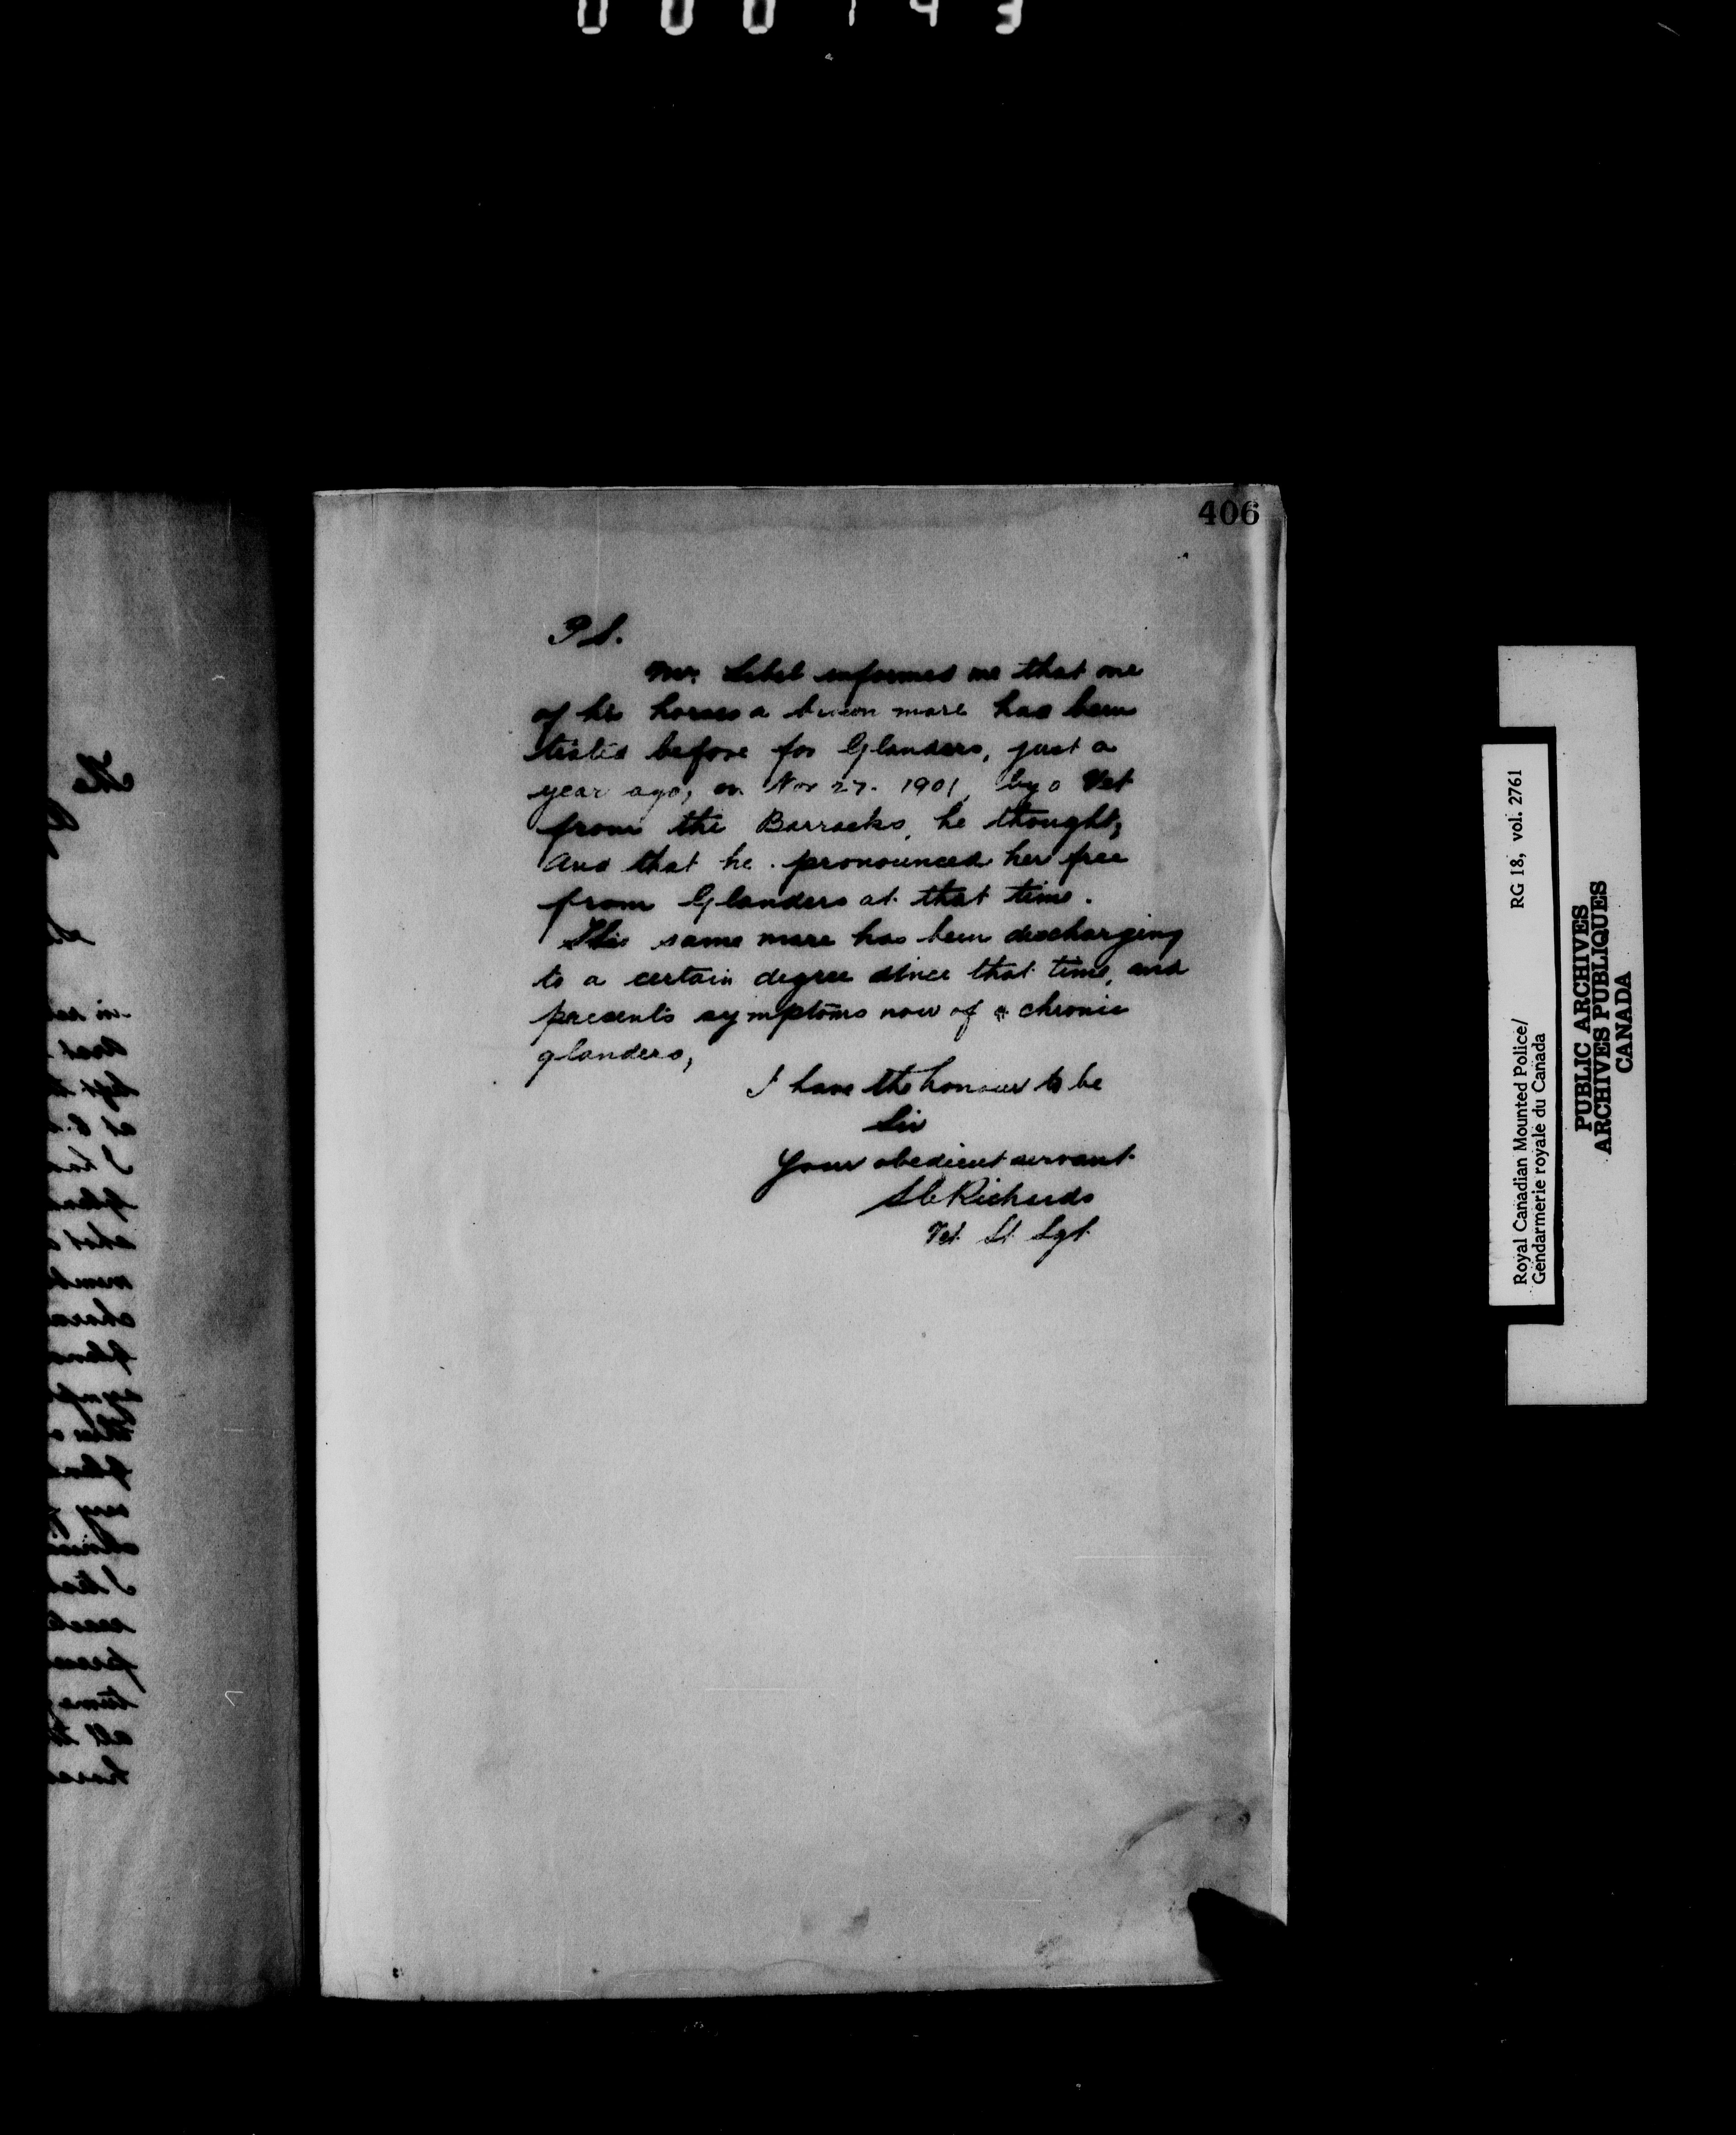 000193
406
P S.
Mr. Lebel informed me that one
of his horses a brown mare has been
tested before for Glanders, just a
year ago, on Nov 27. 1901, by a Vet
from the Barracks, he thought,
And that he pronounced her free
from Glanders at that time.
This same mare has been discharging
to a certain degree since that time, and
presents symptoms now of chronic
glanders,
I have the honour to be
Sir
Your obedient servant
Richards
Vet. St. Sgt.
Royal Canadian Mounted Police/ RG 18, vol. 2761
Gendarmerie royale du Canada
PUBLIC ARCHIVES
ARCHIVES PUBLIQUES
CANADA